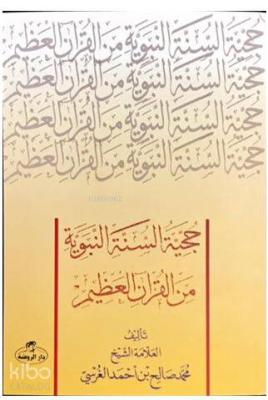 حجية السنة النبوية من القرآن العظيم
حجية السنة النبوية من القرآن العظيم
حجية السنة النبوية من القرآن العظيم
حجية السنة النبوية من القرآن العظيم
حجية السنة النبوية
من القرآن العظيم
تأليف
العلامة الشيخ
محمد صالح بن أحمد الغرسي
دار الروضة
kibo
CATALOG